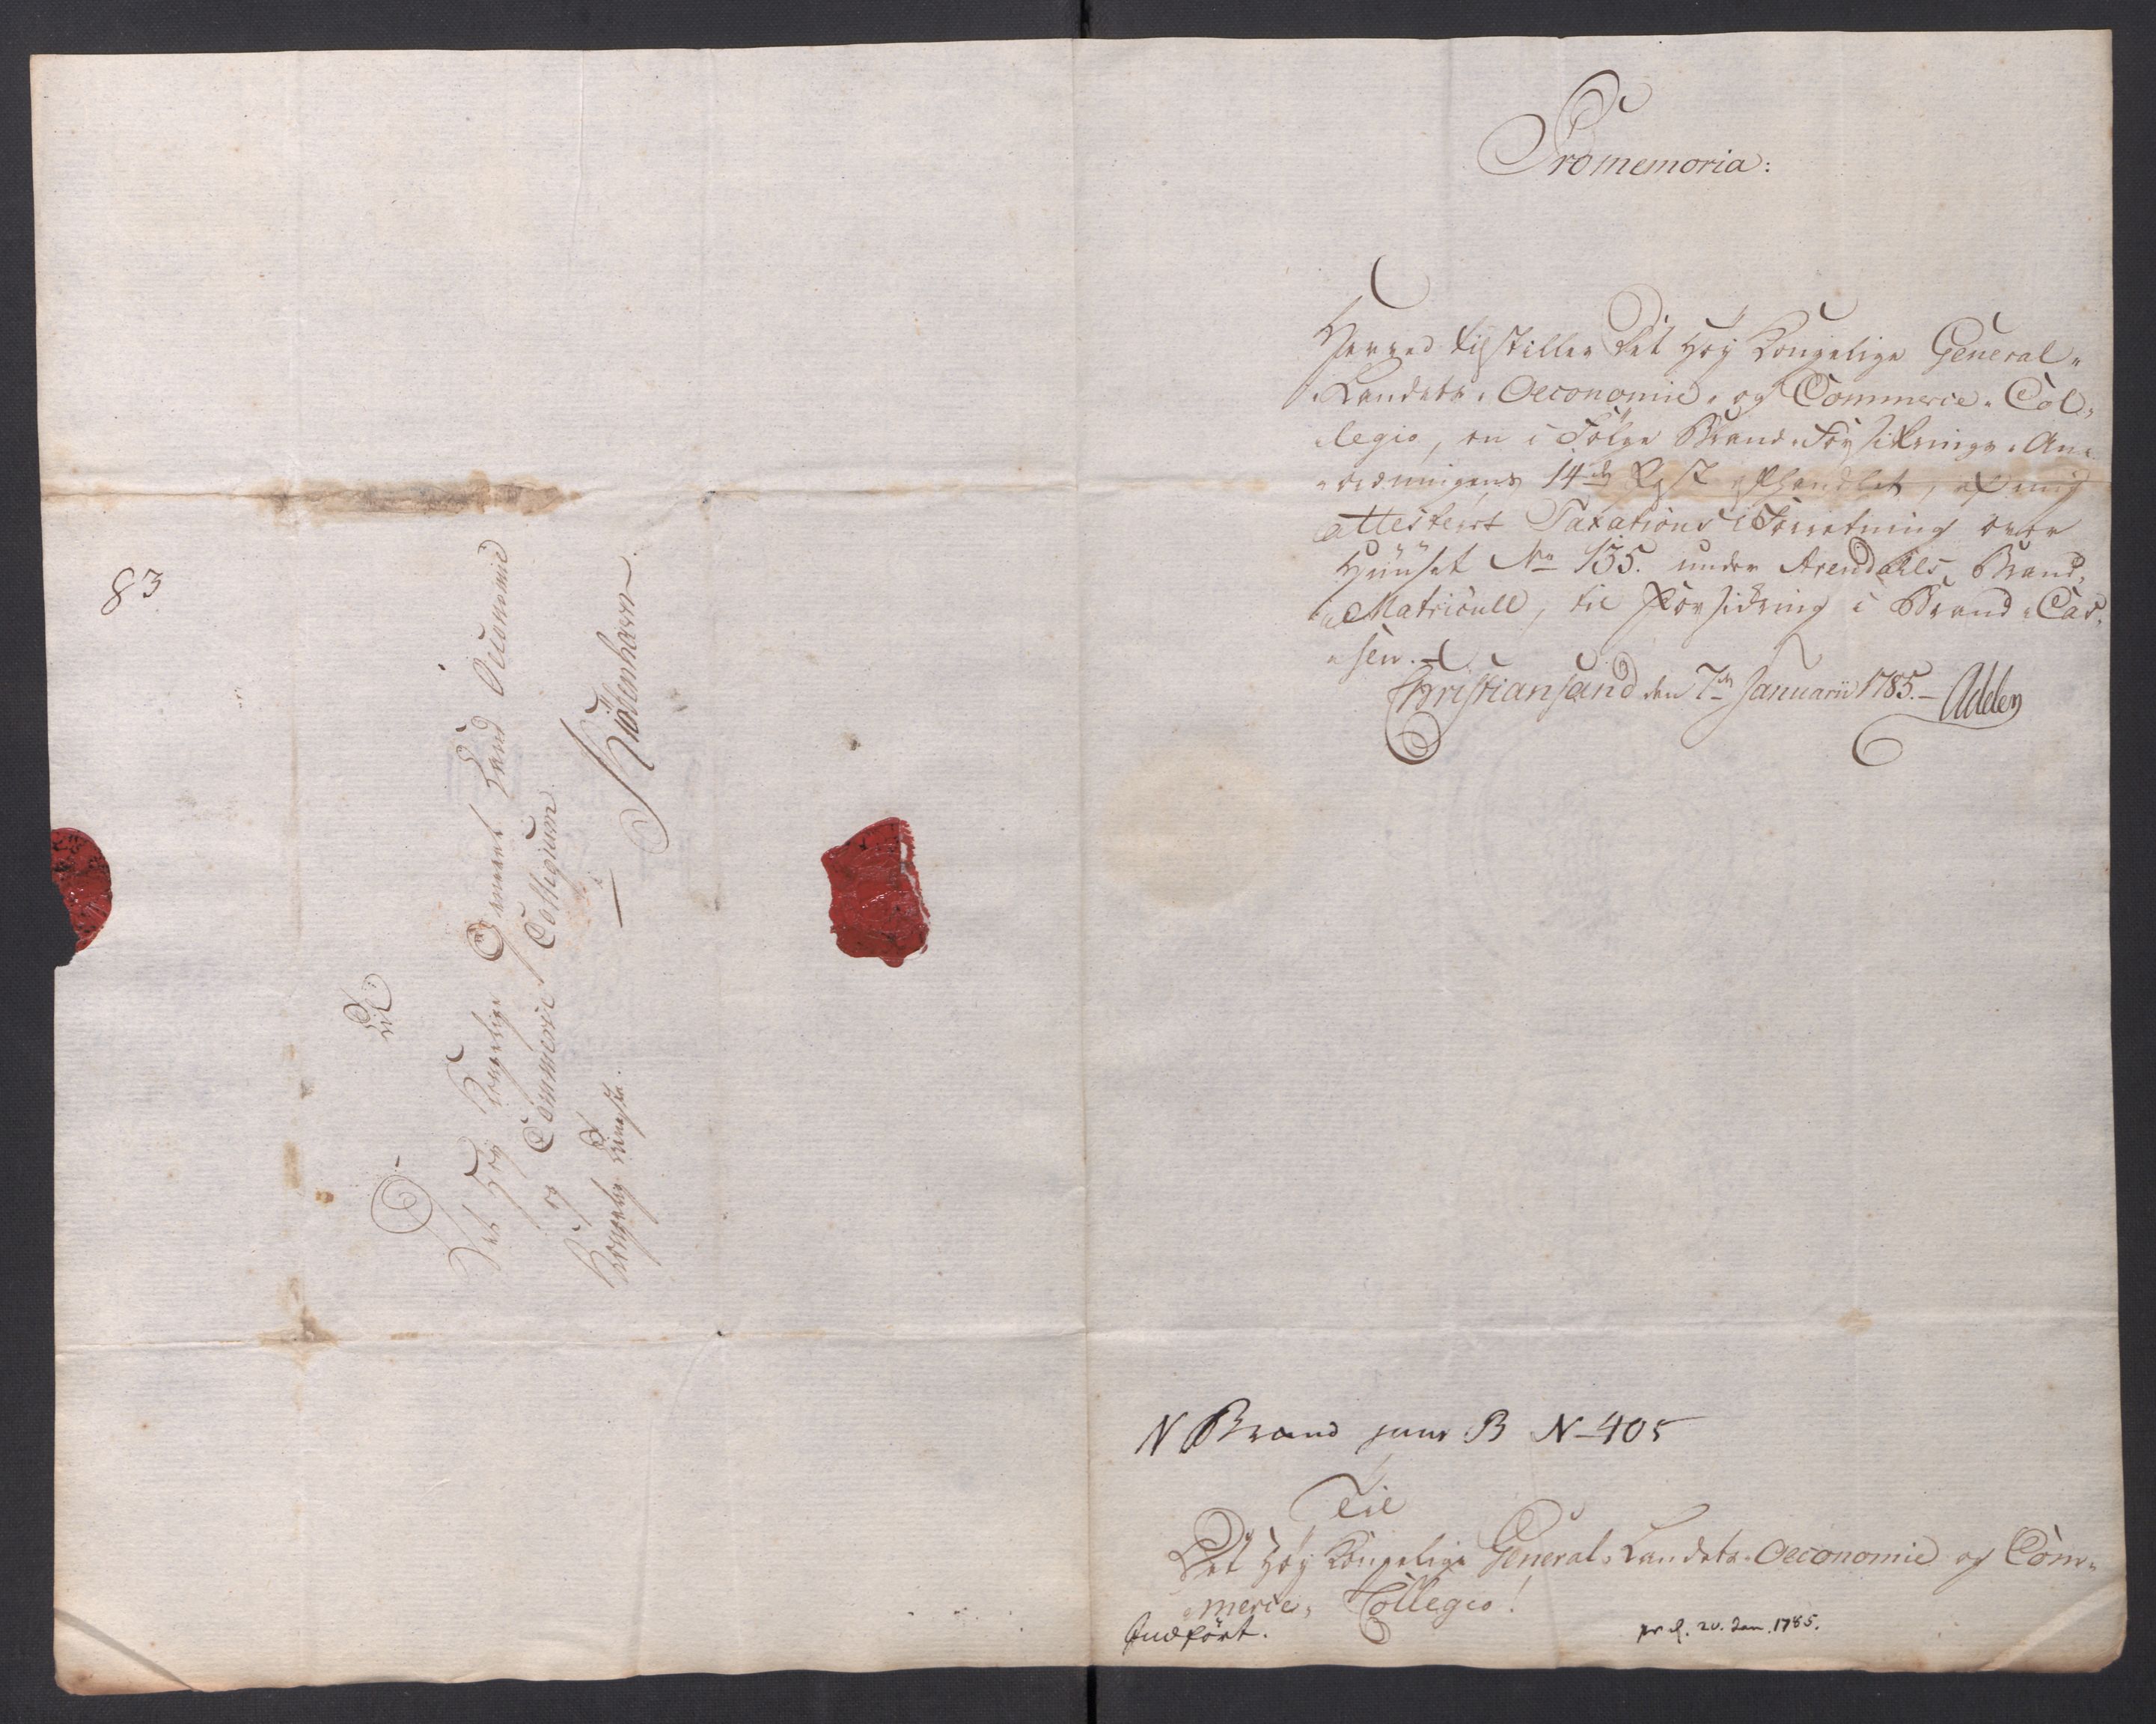 83
Til
Det Høy Kongelige General Land Oeconomie
og Commerce Collegium
i
Kongelig Tieneste.
Kiöbenhavn
Promemoria:
Herved tilstilles Det Høy Kongelige General-
Landets-Oeconomie- og Commerce-Col-
legio, en i Følge Brand-Forsikrings-An-
ordningens 14de Post afhandlet, af mig
attesteret Taxations Forretning over
Huuset No 135. under Arendahls Brand-
Matricull, til Forsikring i Brand-Cas-
sen.
Christiansand den 7de Januarii 1785. Adeler
N Brand B N 405
Til
Det Høy Kongelige General-Landets-Oeconomie og Com-
merce- Collegio!
Indført.
pr d. 20. Jan. 1785.